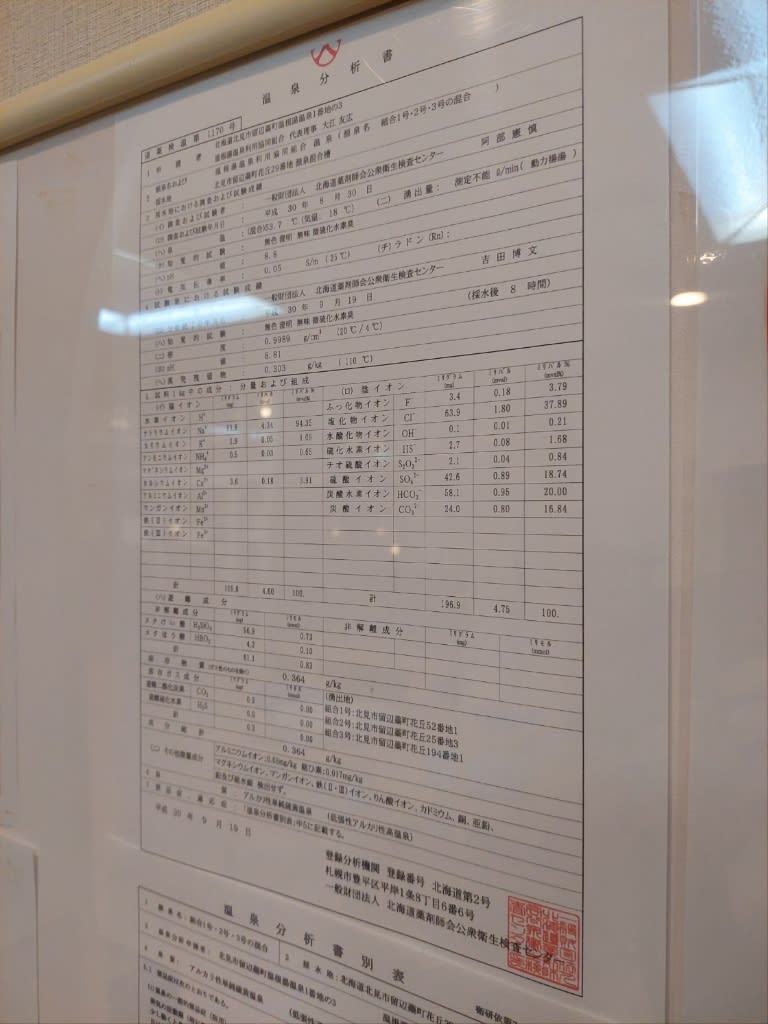 温泉分析書
道薬検温第1170号
1 申請者 北海道北見市留辺蘂町温根湯温泉1番地の3
温根湯温泉利用協同組合 代表理事 大江 友広
2 源泉名および 温根湯温泉利用協同組合 温泉 (源泉名 組合1号・2号・3号の混合)
湧出地 北見市留辺蘂町花丘29番地 源泉混合槽
3 湧出地における調査および試験成績
(イ) 調査および試験者: 一般財団法人 北海道薬剤師会公衆衛生検査センター 阿部 憲慎
(ロ) 調査および試験年月日: 平成 30年 8月 30日
(ハ) 泉温: (混合)53.7 ℃ (気温: 18 ℃) (ニ) 湧出量: 測定不能 ℓ/min (動力揚湯)
知覚的試験: 無色 澄明 無味 微硫化水素臭
pH値: 8.8
電気伝導率: 0.05 S/m (25℃) (チ)ラドン(Rn):
4 試験室における試験成績
一般財団法人 北海道薬剤師会公衆衛生検査センター 吉田 博文
平成 30年 9月 19日
(ハ) 知覚的試験: 無色 澄明 無味 微硫化水素臭 (採水後 8 時間)
(ニ) 密度: 0.9989 g/cm³ (20℃/4℃)
(ホ) pH値: 8.81
(ヘ) 蒸発残留物: 0.303 g/kg (110℃)
5 試料1kg中の成分:分量および組成
(イ) 陽イオン ミリグラム(mg) ミリバル(mval) ミリバル%(mval%)
水素イオン H⁺
ナトリウムイオン Na⁺ 4.34 94.35
カリウムイオン K⁺ 1.9 0.05
アンモニウムイオン NH₄⁺ 0.5 0.03 0.65
マグネシウムイオン Mg²⁺
カルシウムイオン Ca²⁺ 3.6 0.18 3.91
アルミニウムイオン Al³⁺
マンガンイオン Mn²⁺
鉄(Ⅱ)イオン Fe²⁺
鉄(Ⅲ)イオン Fe³⁺
計 4.60 100.
(ロ) 陰イオン ミリグラム(mg) ミリバル(mval) ミリバル%(mval%)
ふっ化物イオン F⁻ 3.4 0.18 3.79
塩化物イオン Cl⁻ 63.9 1.80 37.89
水酸化物イオン OH⁻ 0.1 0.01 0.21
硫化水素イオン HS⁻ 2.7 0.08 1.68
チオ硫酸イオン S₂O₃²⁻ 2.1 0.04 0.84
硫酸イオン SO₄²⁻ 42.6 0.89 18.74
炭酸水素イオン HCO₃⁻ 58.1 0.95 20.00
炭酸イオン CO₃²⁻ 24.0 0.80 16.84
計 196.9 4.75 100.
(ハ) 遊離成分
非解離成分 ミリグラム(mg) ミリモル(mmol)
メタけい酸 H₂SiO₃ 56.9 0.73
メタほう酸 HBO₂ 4.2 0.10
計 61.1 0.83
非解離成分 ミリグラム(mg) ミリモル(mmol)
溶存物質(ガス性のものを除く) 0.364 g/kg
溶存ガス成分 ミリグラム(mg) ミリモル(mmol)
遊離二酸化炭素 CO₂ 0.00
遊離硫化水素 H₂S 0.00
計 0.00
(湧出地)
組合1号:北見市留辺蘂町花丘52番地1
組合2号:北見市留辺蘂町花丘25番地3
組合3号:北見市留辺蘂町花丘194番地1
成分総計 0.364 g/kg
(ニ) その他微量成分 アルミニウムイオン: mg/kg 総ひ素:0.017mg/kg
マグネシウムイオン、マンガンイオン、鉄(Ⅱ・Ⅲ)イオン、りん酸イオン、カドミウム、銅、亜鉛、
鉛及び総水銀 検出せず。
6 泉質 アルカリ性単純硫黄温泉 (低張性アルカリ性高温泉)
7 禁忌症、適応症:「温泉分析書別表」中5に記載する。
平成 30 年 9 月 19 日
登録分析機関 登録番号 北海道第2号
札幌市豊平区平岸1条8丁目6番6号
一般財団法人 北海道薬剤師会公衆衛生検査センター
温泉分析書別表
1 源泉名:組合1号・2号・3号の混合 2 採水地:北海道北見市留辺蘂町花丘
3 温泉分析申請者:北見市留辺蘂町温根湯温泉1番地の3
4 泉質:アルカリ性単純硫黄温泉 (低張性